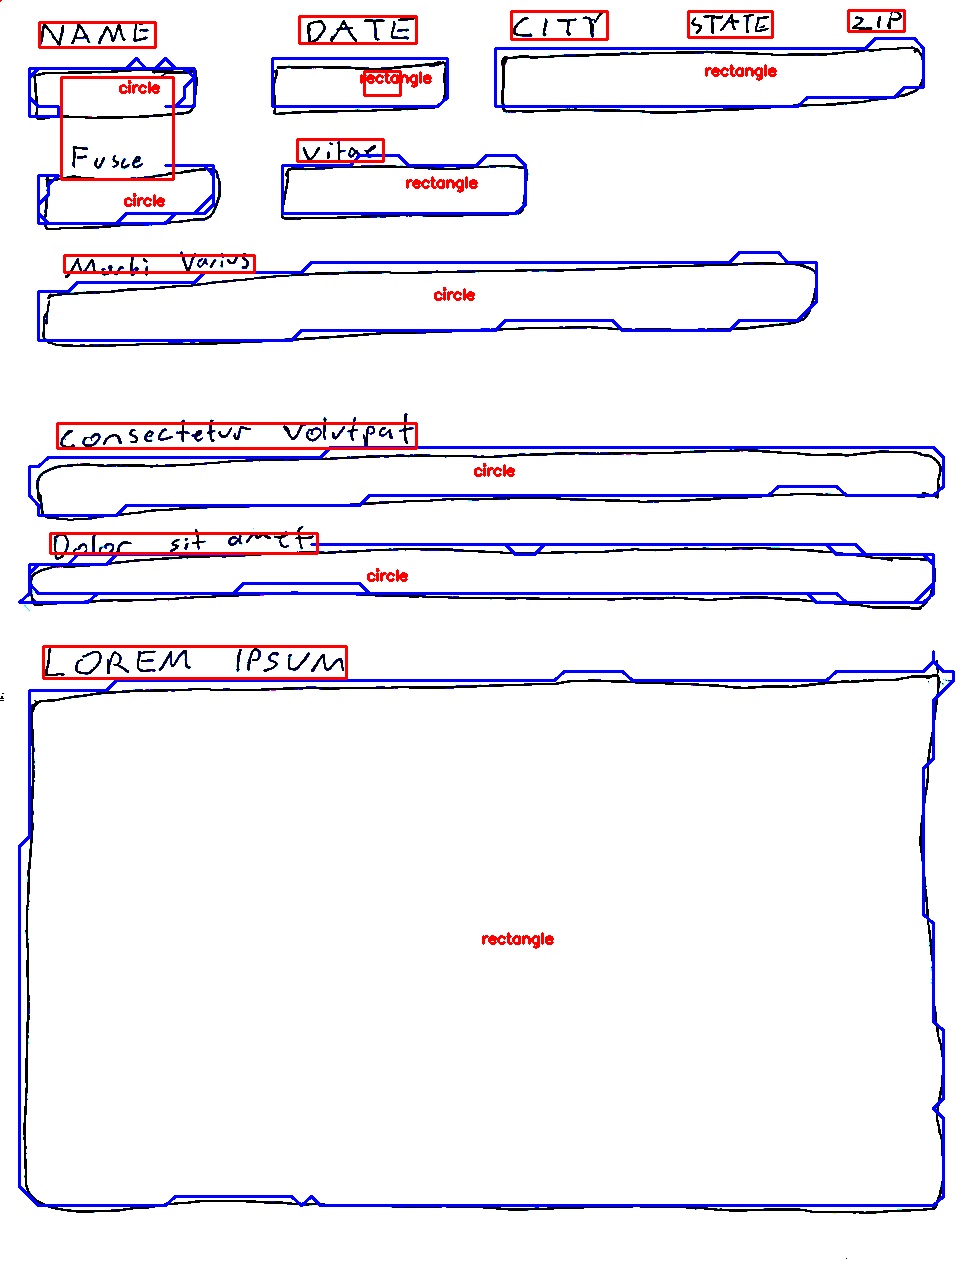 NAME DATE CITY STATE ZIP
circle rectangle rectangle
Fusce Vitae
circle rectangle
Morbi Varius
circle
Consectetur Volutpat
circle
Dolor sit amet
circle
LOREM IPSUM
rectangle